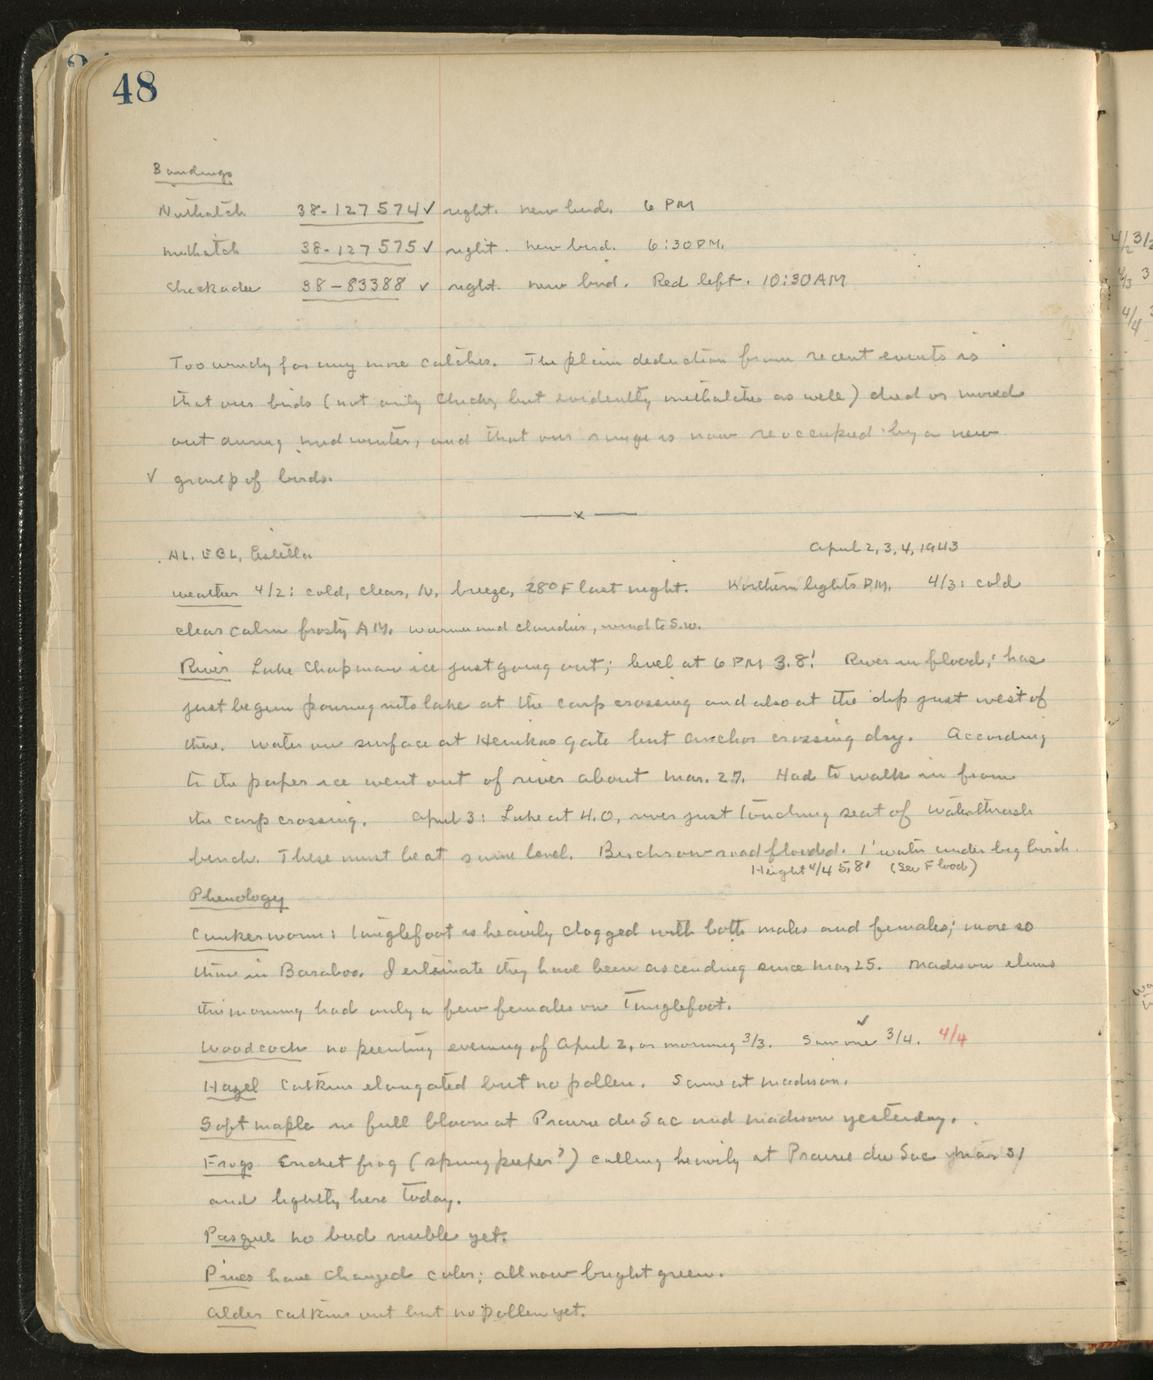 48
Bandings
Nuthatch 38-127574 ✓ right. new bird. 6 PM
nuthatch 38-127575 ✓ right. new bird. 6:30 PM.
Chickadee 38-83388 ✓ right. new bird. Red left. 10:30 AM
Too windy for any more catches. The plain deduction from recent events is
that our birds (not only Chicks, but evidently nuthatches as well) died or moved
out during midwinter, and that our range is now reoccupied by a new
✓ group of birds.
x
AL, EBL, Estella April 2, 3, 4, 1943
Weather 4/2: cold, clear, N. breeze, 28° F last night. Northern lights P.M. 4/3: cold
clear calm frosty A.M. warm and cloudier, wind to S.W.
River Lake Chapman ice just going out; level at 6 PM 3.8'. River in flood; has
just begun pouring into lake at the carp crossing and also at the dip just west of
there. Water on surface at gate but anchor crossing dry. According
to the paper ice went out of river about Mar. 27. Had to walk in from
the carp crossing. April 3: Lake at 4.0, river just touching seat of Waterthrush
bench. These must be at same level. Birchrow road flooded. 1' water under big birch.
Height 4/4 5.8' (See Flood)
Phenology
Cankerworm: Tanglefoot is heavily clogged with both males and females; more so
than in Baraboo. I estimate they have been ascending since Mar 25. Madison elms
this morning had only a few females on Tanglefoot.
Woodcock no peenting evening of April 2, or morning 3/3. Saw one ✓ 3/4. 4/4
Hazel Catkins elongated but no pollen. Same at Madison.
Soft maple in full bloom at Prairie du Sac and Madison yesterday.
Frogs Cricket frog (spring peeper?) calling heavily at Prairie du Sac Mar 31
and lightly here today.
Pasque no bud visible yet.
Pines have changed color; all now bright green.
Alder catkins out but no pollen yet.
4/2 3/2
4/3 3
4/4 3